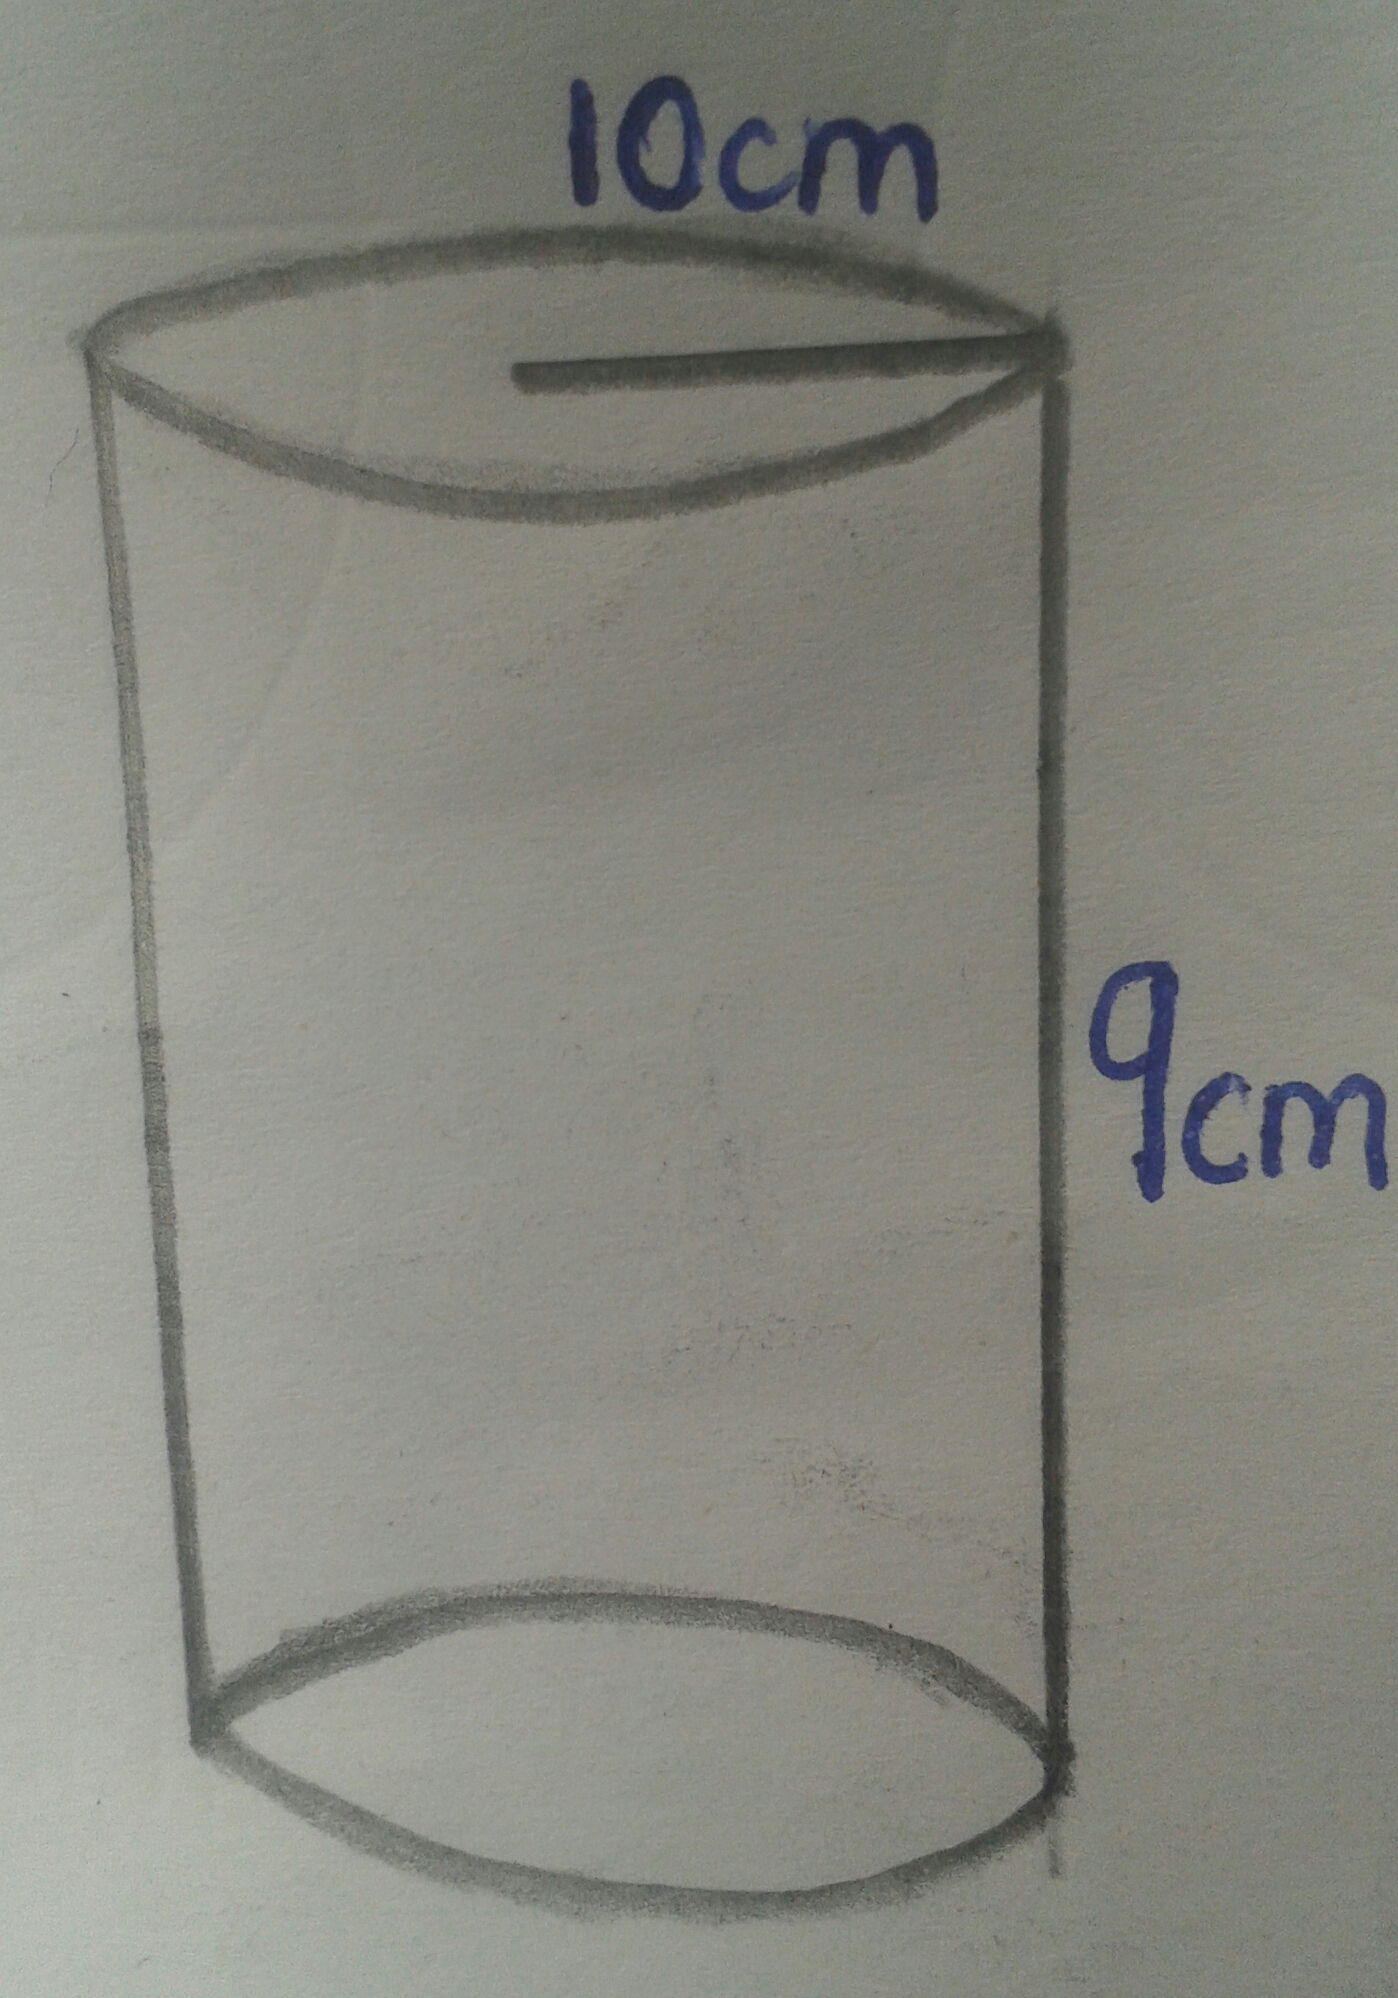 10cm
9cm